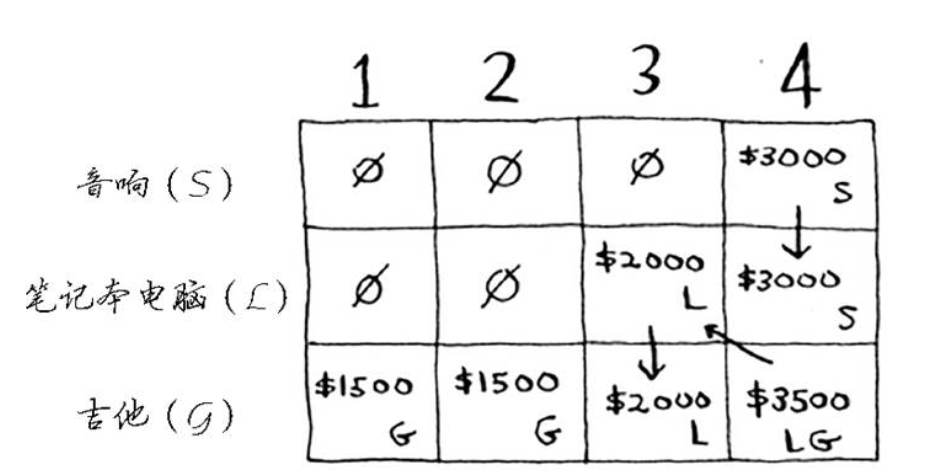 1 2 3 4
音响(S) ∅ ∅ ∅ $3000 S
笔记本电脑(L) ∅ ∅ $2000 L $3000 S
吉他(G) $1500 G $1500 G $2000 L $3500 LG